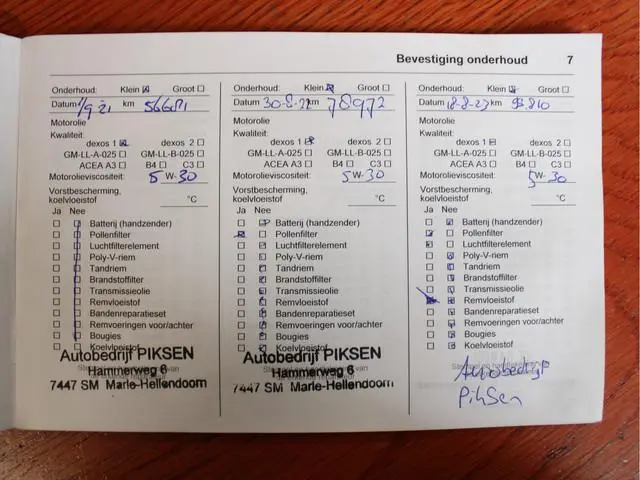 Bevestiging onderhoud 7
Onderhoud: Klein ☒ Groot ☐
Datum 1/9 21 km
Motorolie
Kwaliteit:
dexos 1 ☒ dexos 2 ☐
GM-LL-A-025 ☐ GM-LL-B-025 ☐
ACEA A3 ☐ B4 ☐ C3 ☐
Motorolieviscositeit: 5 W- 30
Vorstbescherming,
koelvloeistof °C
Ja Nee
Batterij (handzender)
Pollenfilter
Luchtfilterelement
Poly-V-riem
Tandriem
Brandstoffilter
Transmissieolie
Remvloeistof
Bandenreparatieset
Remvoeringen voor/achter
Bougies
Koelvloeistof
Autobedrijf PIKSEN
Hammerweg 6
7447 SM Marle-Hellendoorn
Onderhoud: Klein ☒ Groot ☐
Datum 30-8-22 km 78972
Motorolie
Kwaliteit:
dexos 1 ☒ dexos 2 ☐
GM-LL-A-025 ☐ GM-LL-B-025 ☐
ACEA A3 ☐ B4 ☐ C3 ☐
Motorolieviscositeit: 5 W- 30
Vorstbescherming,
koelvloeistof °C
Ja Nee
Batterij (handzender)
Pollenfilter
Luchtfilterelement
Poly-V-riem
Tandriem
Brandstoffilter
Transmissieolie
Remvloeistof
Bandenreparatieset
Remvoeringen voor/achter
Bougies
Koelvloeistof
Autobedrijf PIKSEN
Hammerweg 6
7447 SM Marle-Hellendoorn
Onderhoud: Klein ☒ Groot ☐
Datum 18-8-23 km 93.810
Motorolie
Kwaliteit:
dexos 1 ☒ dexos 2 ☐
GM-LL-A-025 ☐ GM-LL-B-025 ☐
ACEA A3 ☐ B4 ☐ C3 ☐
Motorolieviscositeit: 5 W- 30
Vorstbescherming,
koelvloeistof °C
Ja Nee
Batterij (handzender)
Pollenfilter
Luchtfilterelement
Poly-V-riem
Tandriem
Brandstoffilter
Transmissieolie
Remvloeistof
Bandenreparatieset
Remvoeringen voor/achter
Bougies
Koelvloeistof
Autobedrijf
Piksen